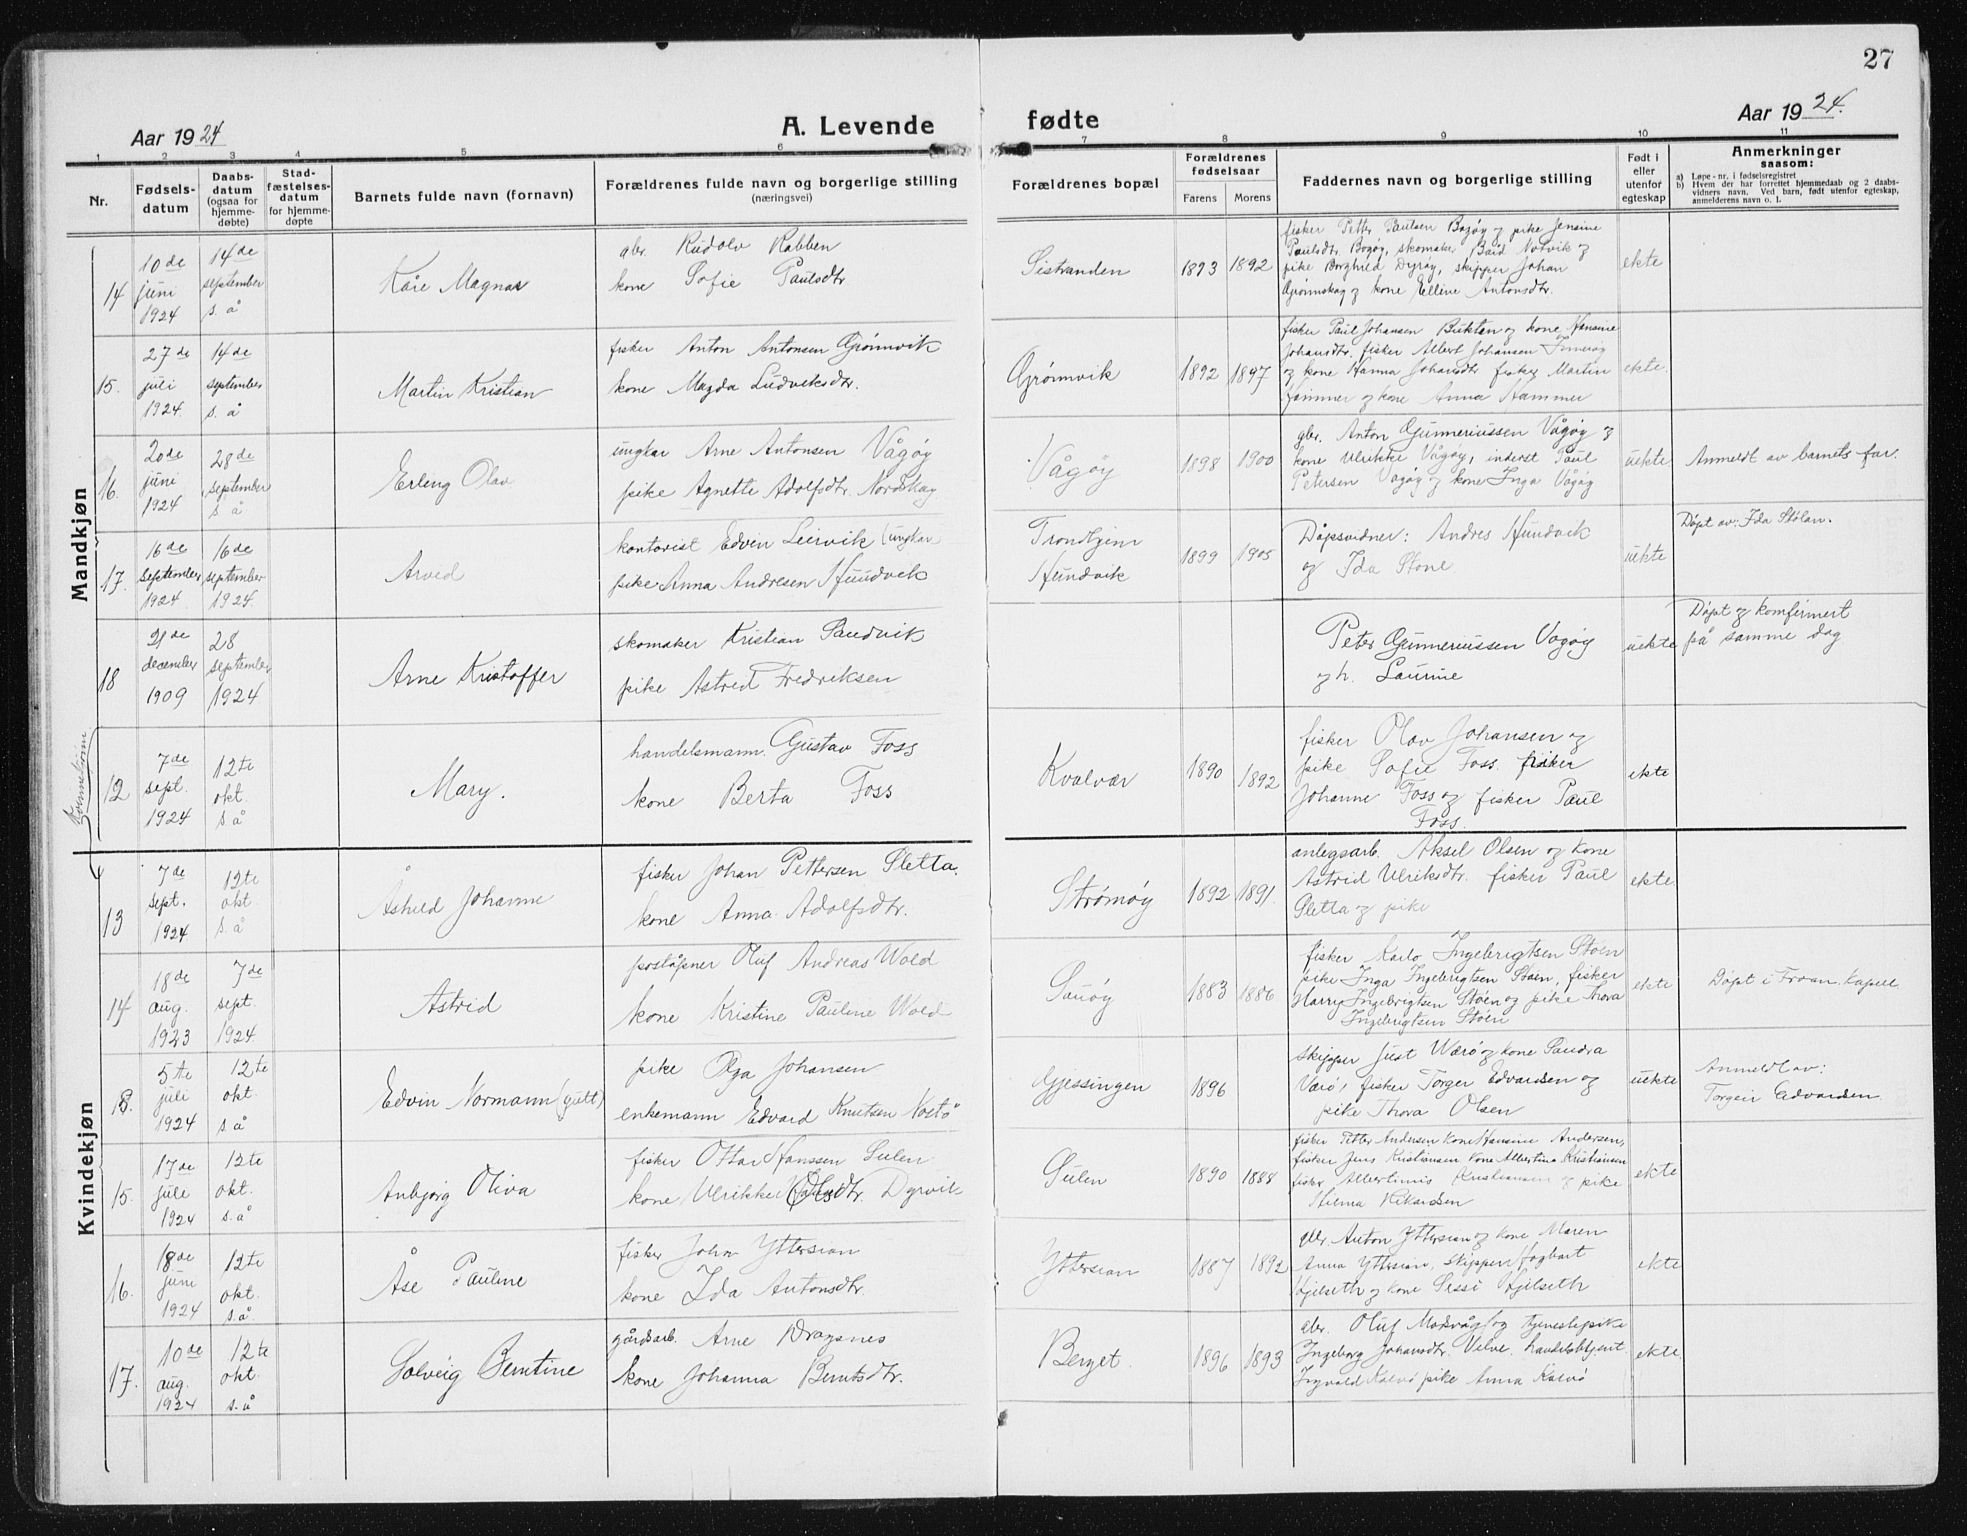 27
Aar 1924
A. Levende fødte
Aar 1924.
1 2 3 4 5 6 7 8 9 10 11
Nr.
Fødsels-
datum
Daabs-
datum
(ogsaa for
hjemme-
døbte)
Stad-
fæstelses-
datum
for hjemme-
døpte
Barnets fulde navn (fornavn)
Forældrenes fulde navn og borgerlige stilling
(næringsvei)
Forældrenes bopæl
Forældrenes
fødselsaar
Farens Morens
Faddernes navn og borgerlige stilling
Født i
eller
utenfor
egteskap
Anmerkninger
saasom:
a) Løpe-nr. i fødselsregistret
b) Hvem der har forrettet hjemmedaab og 2 daabs-
vidners navn. Ved barn, født utenfor egteskap,
anmelderens navn o. l.
Mandkjøn
14
10de
juni
1924
14de
september
s. å
Kåre Magnar
gbr. Rudolv Rabben
kone Sofie Paulsdtr
Sistranden
1893 1892
fisker Petter Paulsen Bogøy og pike Jensine
Paulsdtr. Bogøy, skomaker Bård Notvik og
pike Borghild Dyrøy, skipper Johan
Grønnskag og kone Elline Antonsdtr.
ekte
15.
27de
juli
1924.
14de
september
s. å
Martin Kristian
fisker Anton Antonsen Grønnvik
kone Magda Ludveksdtr.
Grønnvik
1892 1897
fisker Paul Johansen Buktan og kone Hansine
Johansdtr. fisker Albert Johansen
og kone Hanna Johansdtr fisker Martin
Hammer og kone Anna Hammer
ekte.
16.
20de
juni
1924
28de
september
s å
Erling Olav
ungkar Arne Antonsen Vågøy
pike Agnette Adolfsdtr. Nordskag
Vågøy
1898 1900
gbr. Anton Gunneriussen Vågøy og
kone Ulrikke Vågøy, inderst Paul
Petersen Vågøy og kone Inga Vågøy
uekte
Anmeldt av barnets far.
17.
16de
september
1924
16de
september
1924
Arved
kontorist Edvin Leirvik (ungkar)
pike Anna Andresen Hundvek
Trondhjem
Hundvik
1899 1905
Dåpsvidner: Andres Hundvek
og Ida Stone.
uekte
Døpt av: Ida Stølan.
18
21de
december
1909
28
september
1924
Arne Kristoffer
skomaker Kristian Sandvik
pike Astred Fredriksen
Peter Gunneriussen Vågøy
og h. Laurine
uekte
Døpt og komfirmert
på samme dag
Kvinnekjønn
12
7de
sept.
1924
12te
okt.
s å
Mary.
handelsmann. Gustav Foss
kone Berta Foss
Kvalvær
1890 1892
fisker Olav Johansen og
pike Sofie Foss. fisker
Johanne Foss og fisker Paul
Foss.
ekte
Kvindekjøn
13
7de
sept.
1924
12te
okt.
s. å
Åshild Johanne
fisker Johan Pettersen Sletta.
kone Anna Adolfsdtr.
Strømøy
1892 1891.
anlegsarb. Aksel Olsen og kone
Astrid Ulriksdtr. fisker Paul
Sletta og pike
ekte
14
18de
aug.
1923
7de
sept.
1924.
Astrid
poståpner Oluf Andreas Wold
kone Kristine Pauline Wold
Sauøy
1883 1886
fisker Karlo Ingebrigtsen Støen
pike Inga Ingebrigtsen Støen, fisker
Harry Ingebrigtsen Støen og pike Thora
Ingebrigtsen Støen
ekte
Døpt i Froan Kapell
5te
juli
1924
12te
okt.
s. å
Edvin Normann (gutt)
pike Olga Johansen
enkemann Edvard Knutsen
Gjessingen
1896
skipper Just Værø og kone Sandra
Værø, fisker Torger Edvardsen og
pike Thora Olsen
uekte
Anmeldt av:
Torgeir Edvardsen
15.
17de
juli
1924
12te
okt.
s. å
Anbjørg Oliva
fisker Ottar Hanssen Sulen
kone Ulrikke Olsdtr. Dyrvik
Sulen
1890 1888
fisker Petter Andersen kone Hansine Andersen,
fisker Jens Kristiansen kone Albertina Kristiansen
fisker Albertinius Kristiansen og pike
Hilma Rikardsen
ekte
16.
18de
juni
1924
12te
okt.
s. å.
Åse Pauline
fisker John Yttersian
kone Ida Antonsdtr.
Yttersian
1887 1892
gbr. Anton Yttersian og kone Maren
Anna Yttersian, skipper Hagbart
Hjelseth og kone Sessi Hjelseth
ekte
17.
10de
aug.
1924
12te
okt.
s. å
Solveig Berntine
gårdsarb. Arne Dragsnes
kone Johanna Berntsdtr.
Berget.
1896 1893
gbr. Oluf Mokvåg og tjenestepike
Ingeborg Johansdtr. Velve. handelsbetjent
Ingvald Kalvø pike Anna Kalvø
ekte.